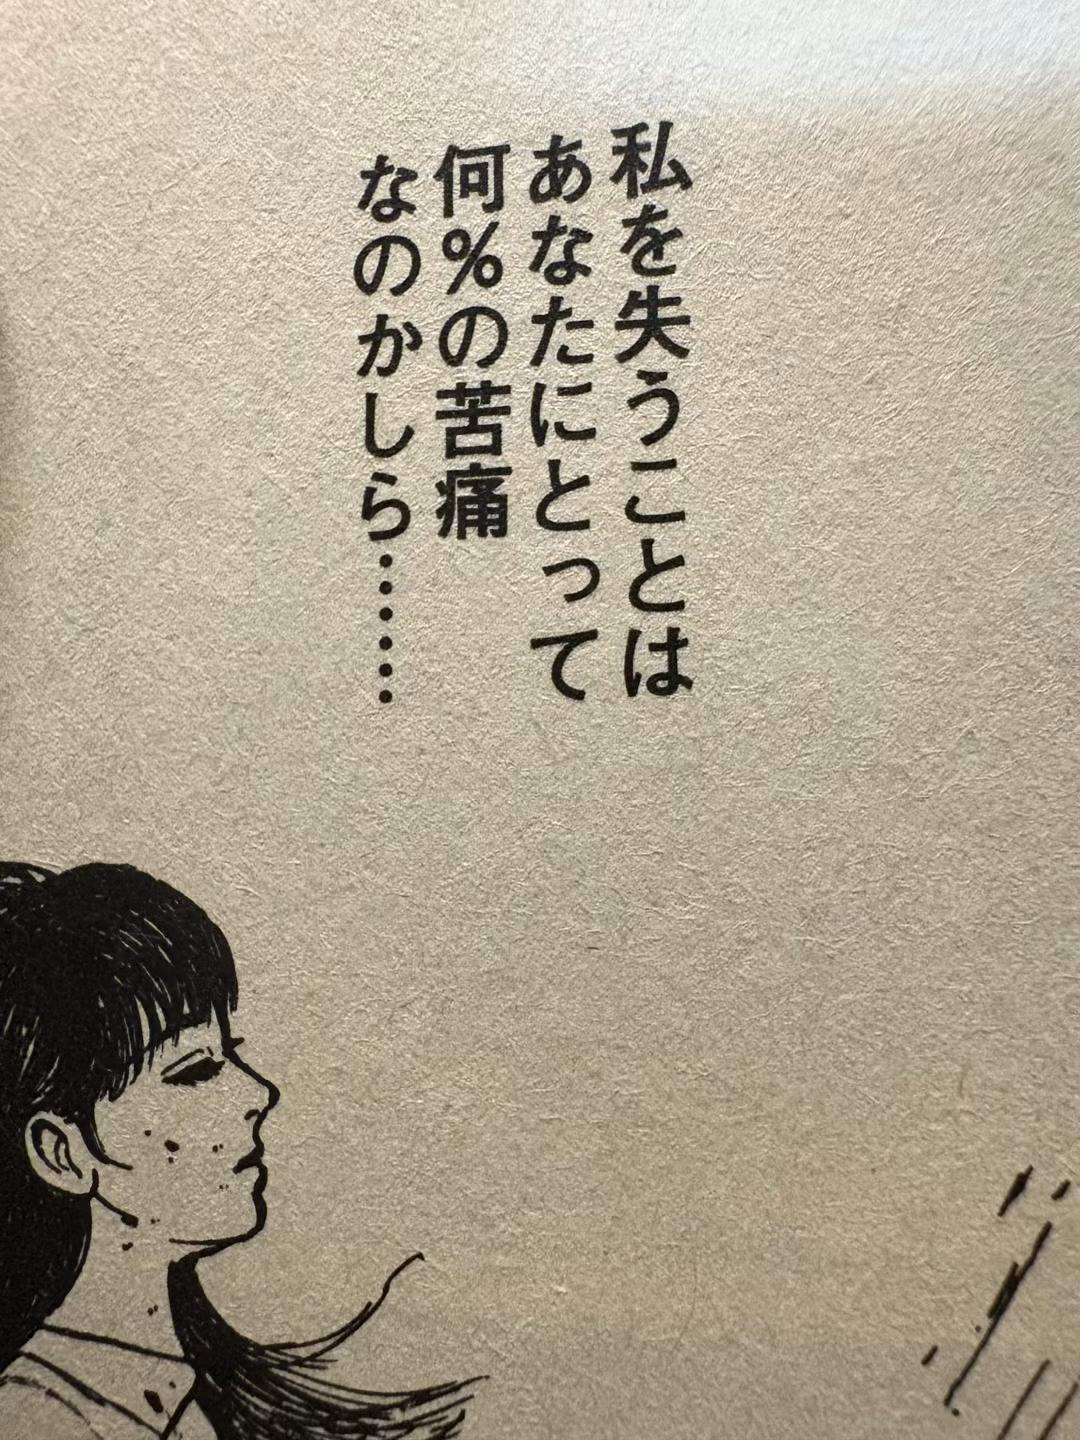 私を失うことは
あなたにとって
何%の苦痛
なのかしら……